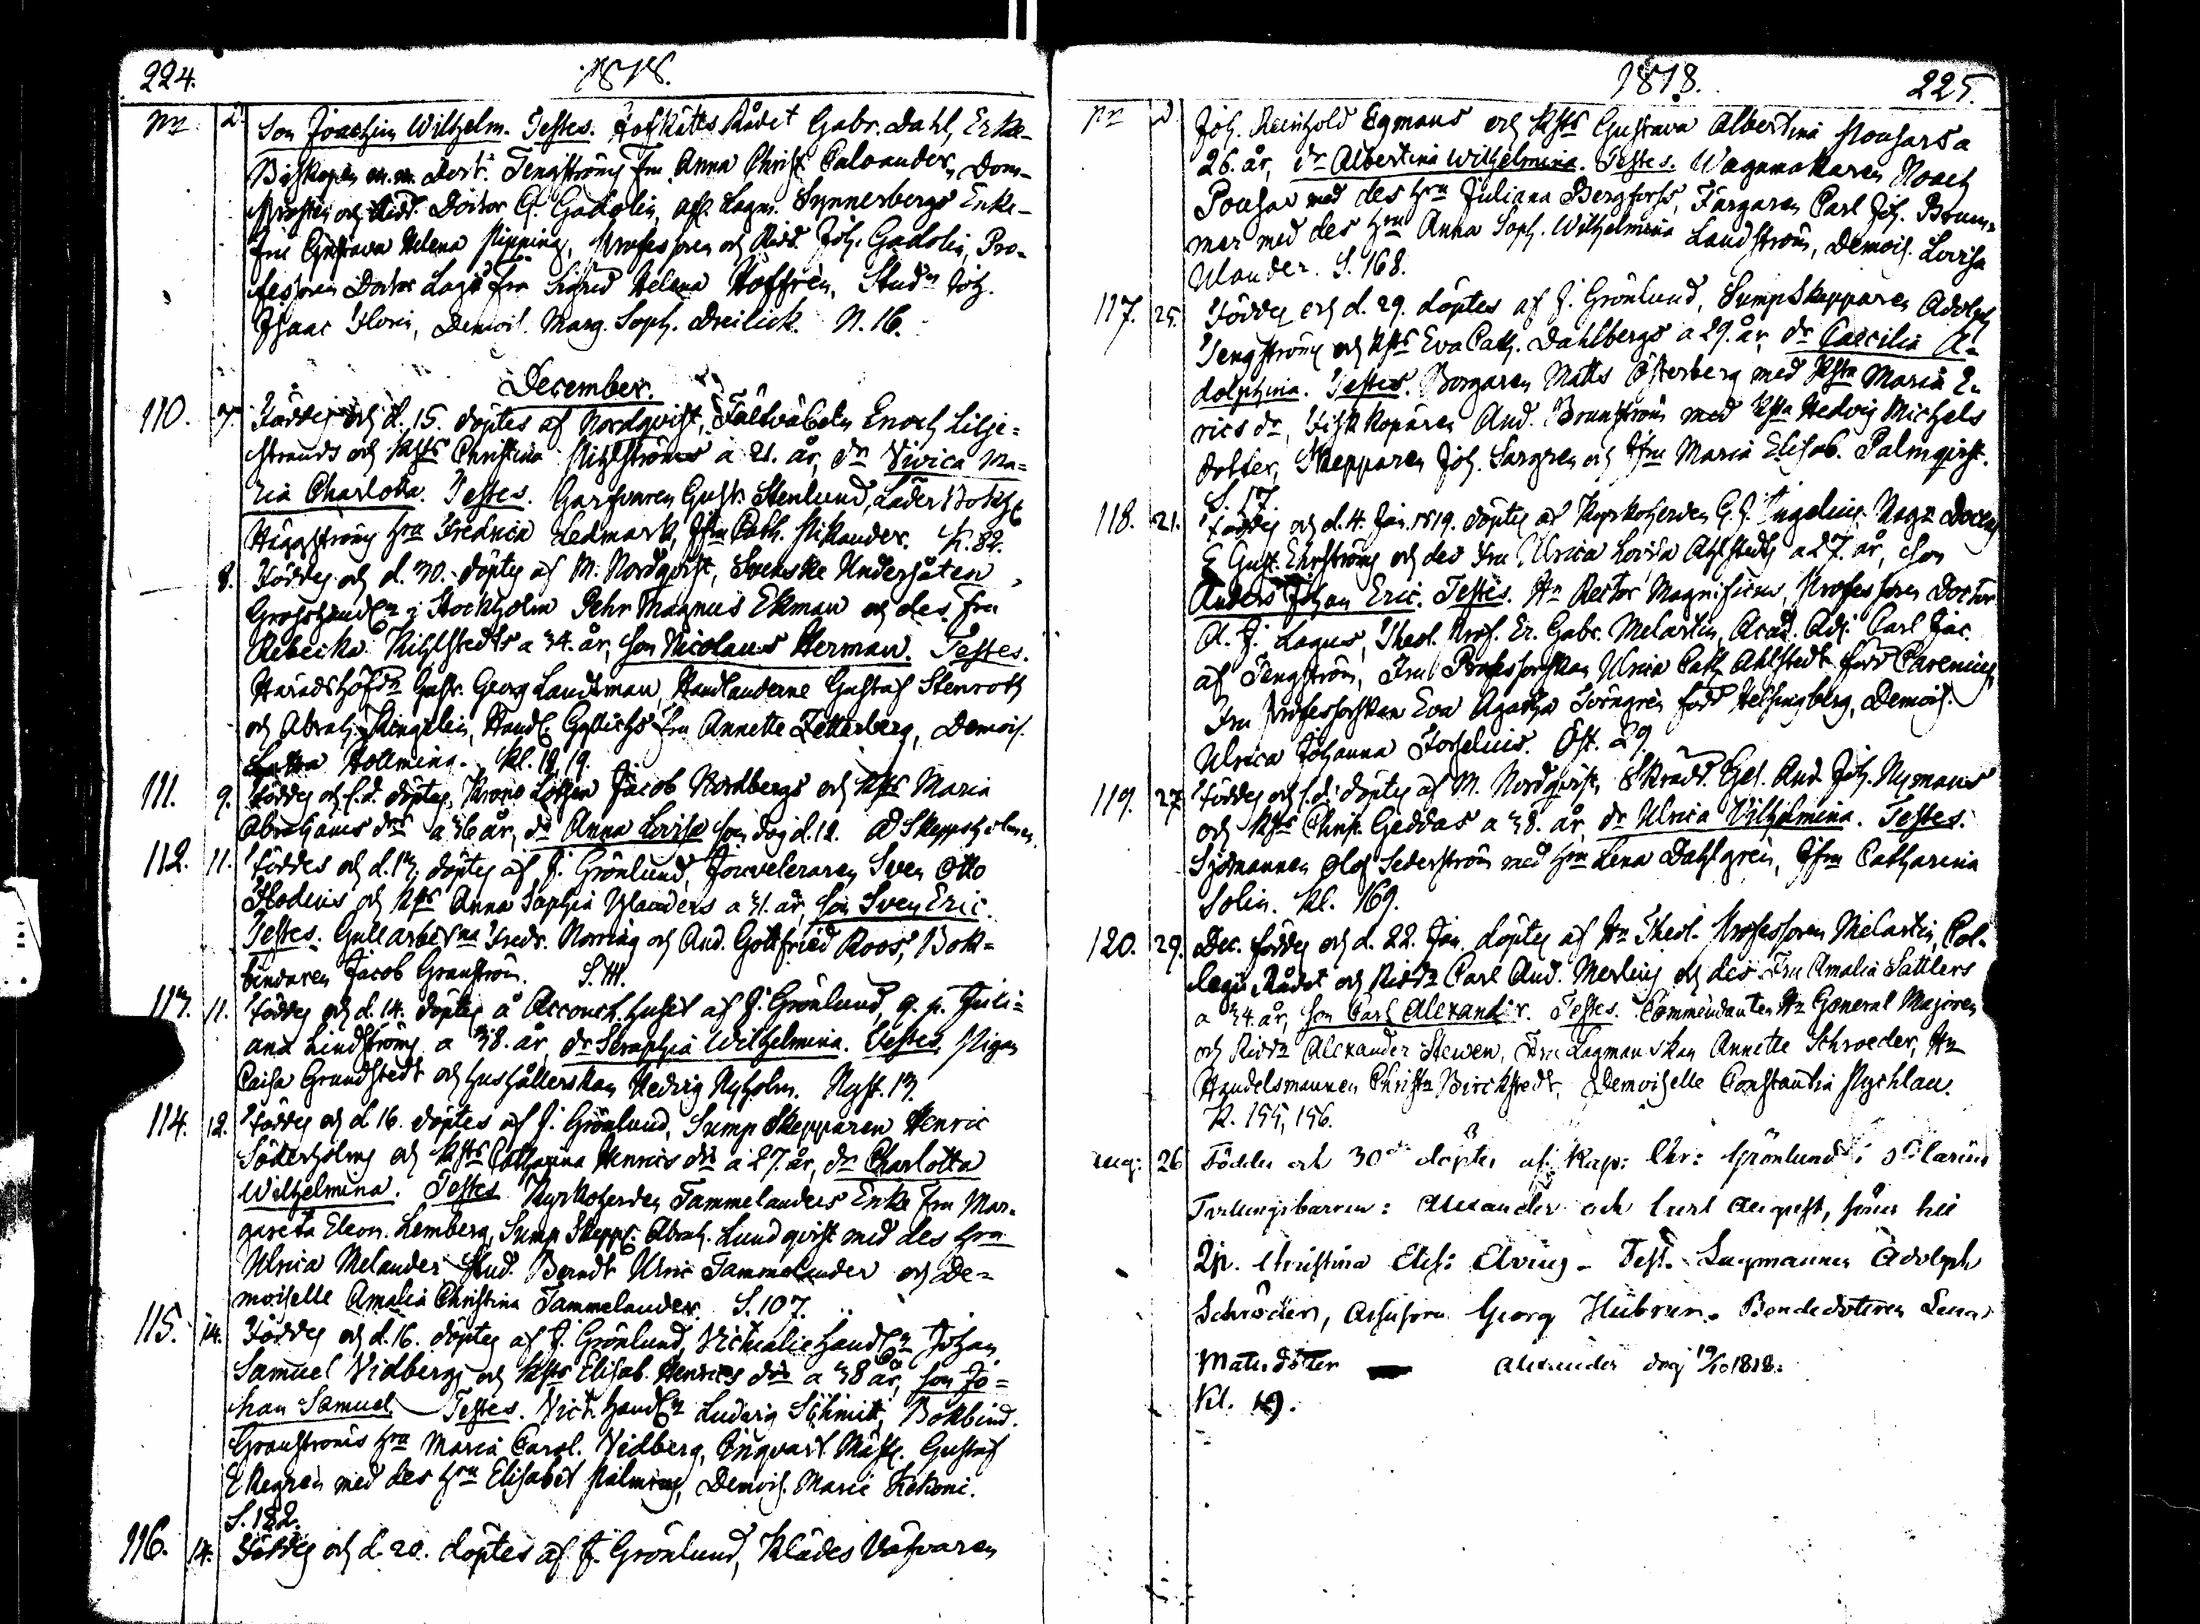 224. 1818.
Nr. D.
Son Joachim Wilhelm. Testes. HofRätts Rådet Gabr. Dahl, Erke-
Biskopen m.m. Doct. Tengströms Fru Anna Christ. Caloander, Dom-
Prosten och Ridd. Doctor G. Gadolin, afl. Lagm. Synnerbergs Enke-
Fru Gustava Helena Pipping, Professoren och Ridd. Joh. Gadolin, Pro-
fessoren Doctor Lagi Fru Sigrid Helena Höffrén, Stud:n Joh.
Isaac Florin, Demois. Marg. Soph. Dreilick. N. 16.
December.
110. 7. Föddes och d. 15. döptes af Nordqvist, Fältväbeln Enoch Lilje-
strands och Hustrus Christina Pihlströms a 21. år, dr Vivica Ma-
ria Charlotta. Testes. Garfvaren Gust. Stenlund,
Häggströms Hru Fredrica Ledmark, Jfru Cath. Nikander. K. 82.
8. Föddes och d. 30. döptes af M. Nordqvist, Svenske Undersåten
Grosshandl:n i Stockholm Pehr Magnus Ekman och des Fru
Rebecka Kihlstedts a 34. år, Son Nicolaus Herman. Testes.
Häradshöfd:n Gust. Georg Landtman, Handlanderne Gustaf Stenroth
och Abrah. Kingelin, Handl. Fru Annette Zetterberg, Demois.
Hollming. Kl. 18, 19.
111. 9. Föddes och s.d. döptes, Krono Lotsen Jacob Nordbergs och Hustrus Maria
Abrahams drs a 36 år, dr Anna Lovisa som dog d. 12. Skeppsholmen
112. 11. Föddes och d. 13. döptes af J. Grönlund, Jouveleraren Sven Otto
Flodins och Hustrus Anna Sophia Ulanders a 31. år, Son Sven Eric.
Testes. Gullarbet:na Fredr. Norring och And. Gottfried Roos, Bok-
bindaren Jacob Granström. S. 141.
113. 11. Föddes och d. 14. döptes å Accouch. huset af J. Grönlund, q. p. Juli-
ana Lindströms a 38. år, dr Seraphia Wilhelmina. Testes. Pigan
Caisa Grundstedt och Hushållerskan Hedvig Nyholm. Nyst. 13.
114. 12. Föddes och d. 16. döptes af J. Grönlund, Sump Skepparen Henric
Söderholms och Hustrus Catharina Henrics drs a 27. år, dr Charlotta
Wilhelmina. Testes. Kyrkoherden Tammelanders Enke Fru Mar-
gareta Eleon. Lemberg, Sump Skepp. Abrah. Lundqvist med des Hru
Ulrica Melander, Stud. Berndt Ulric Tammelander och De-
moiselle Amalia Christina Tammelander. S. 107.
115. 14. Föddes och d. 16. döptes af J. Grönlund, Victualiehandl:n Johan
Samuel Vidbergs och Hustrus Elisab. Henrics drs a 38 år, Son Jo-
han Samuel. Testes. Vict. Handl:n Ludvig Schmitt, Bokbind.
Granströms Hru Maria Carol. Vidberg, Gustaf
Ekegrén med des Hru Elisabet Palmros, Demois. Marie Kekoni.
S. 182.
116. 14. Föddes och d. 20. döptes af J. Grönlund, Klädes Väfvaren
1818. 225.
Nr D.
Joh. Reinhold Egmans och Hustrus Gustava Albertina Pousars a
26. år, dr Albertina Wilhelmina. Testes. Wagnmakaren Noach
Pousar med des Hru Juliana Bergfors, Färgaren Carl Joh. Brum-
mer med des Hru Anna Soph. Wilhelmina Landström, Demois. Lovisa
Ulander. S. 168.
117. 25. Föddes och d. 29. döptes af J. Grönlund, SumpSkepparen Adolph
Tengströms och Hustrus Eva Cath. Dahlbergs a 29. år, dr Caecilia A-
dolphina. Testes. Borgaren Matts Österberg med Hustru Maria E-
rics dr, Fiskköparen And. Brunström med Hustru Hedvig Michels
dotter, Skepparen Joh. Sargren och Jfru Maria Elisab. Palmqvist.
S. 17.
118. 21. Föddes och d. 4. Jan. 1819. döptes af Kyrkoherden G. J. Ingelius, Mag:r Docens
E Gust. Ehrströms och des Fru Ulrica Lovisa Ahlstedts a 27. år, Son
Anders Johan Eric. Testes. Hr Rector Magnificus, Professoren Doctor
A. J. Lagus, Theol. Prof. Er. Gabr. Melartin, Acad. Adj. Carl Jac.
af Tengström, Fru Professorskan Ulrica Cath. Ahlstedt född Carenius,
Fru Professorskan Eva Agatha Törngren född Helsingberg, Demois.
Ulrica Johanna Forselius. Öst. 29.
119. 27. Föddes och s.d. döptes af M. Nordqvist, Skradd. Ges. And. Joh. Nymans
och Hustrus Christ. Geddas a 38. år, dr Ulrica Vilhelmina. Testes.
Sjömannen Olof Sederström med Hru Lena Dahlgrén, Jfru Catharina
Solin. Kl. 169.
120. 29. Dec. föddes och d. 22. Jan. döptes af Hr Theol. Professoren Melartin, Col-
legii Rådet och Ridd:n Carl And. Merlins och des Fru Amalia Sattlers
a 34. år, Son Carl Alexander. Testes. Commendanten Hr General Majoren
och Ridd:n Alexander Stewen, Fru Lagmanskan Annette Schroeder, Hr
Handelsmannen Christ:n Birckstedt, Demoiselle Constantia Nychlau.
K. 155, 156.
Aug: 26 Föddes och 30de döptes af Kap: Chr: Grönlund i S:t Carins
Tvillingsbarnen: Alexander och Carl August, söner till
Qp. Christina Elis: Elving. Test. Lagmannen Adolph
Schröder, Assessorn Georg Bondedottren Lena
Mats dotter Alexander dog 19/10 1818.
Kl. 19.